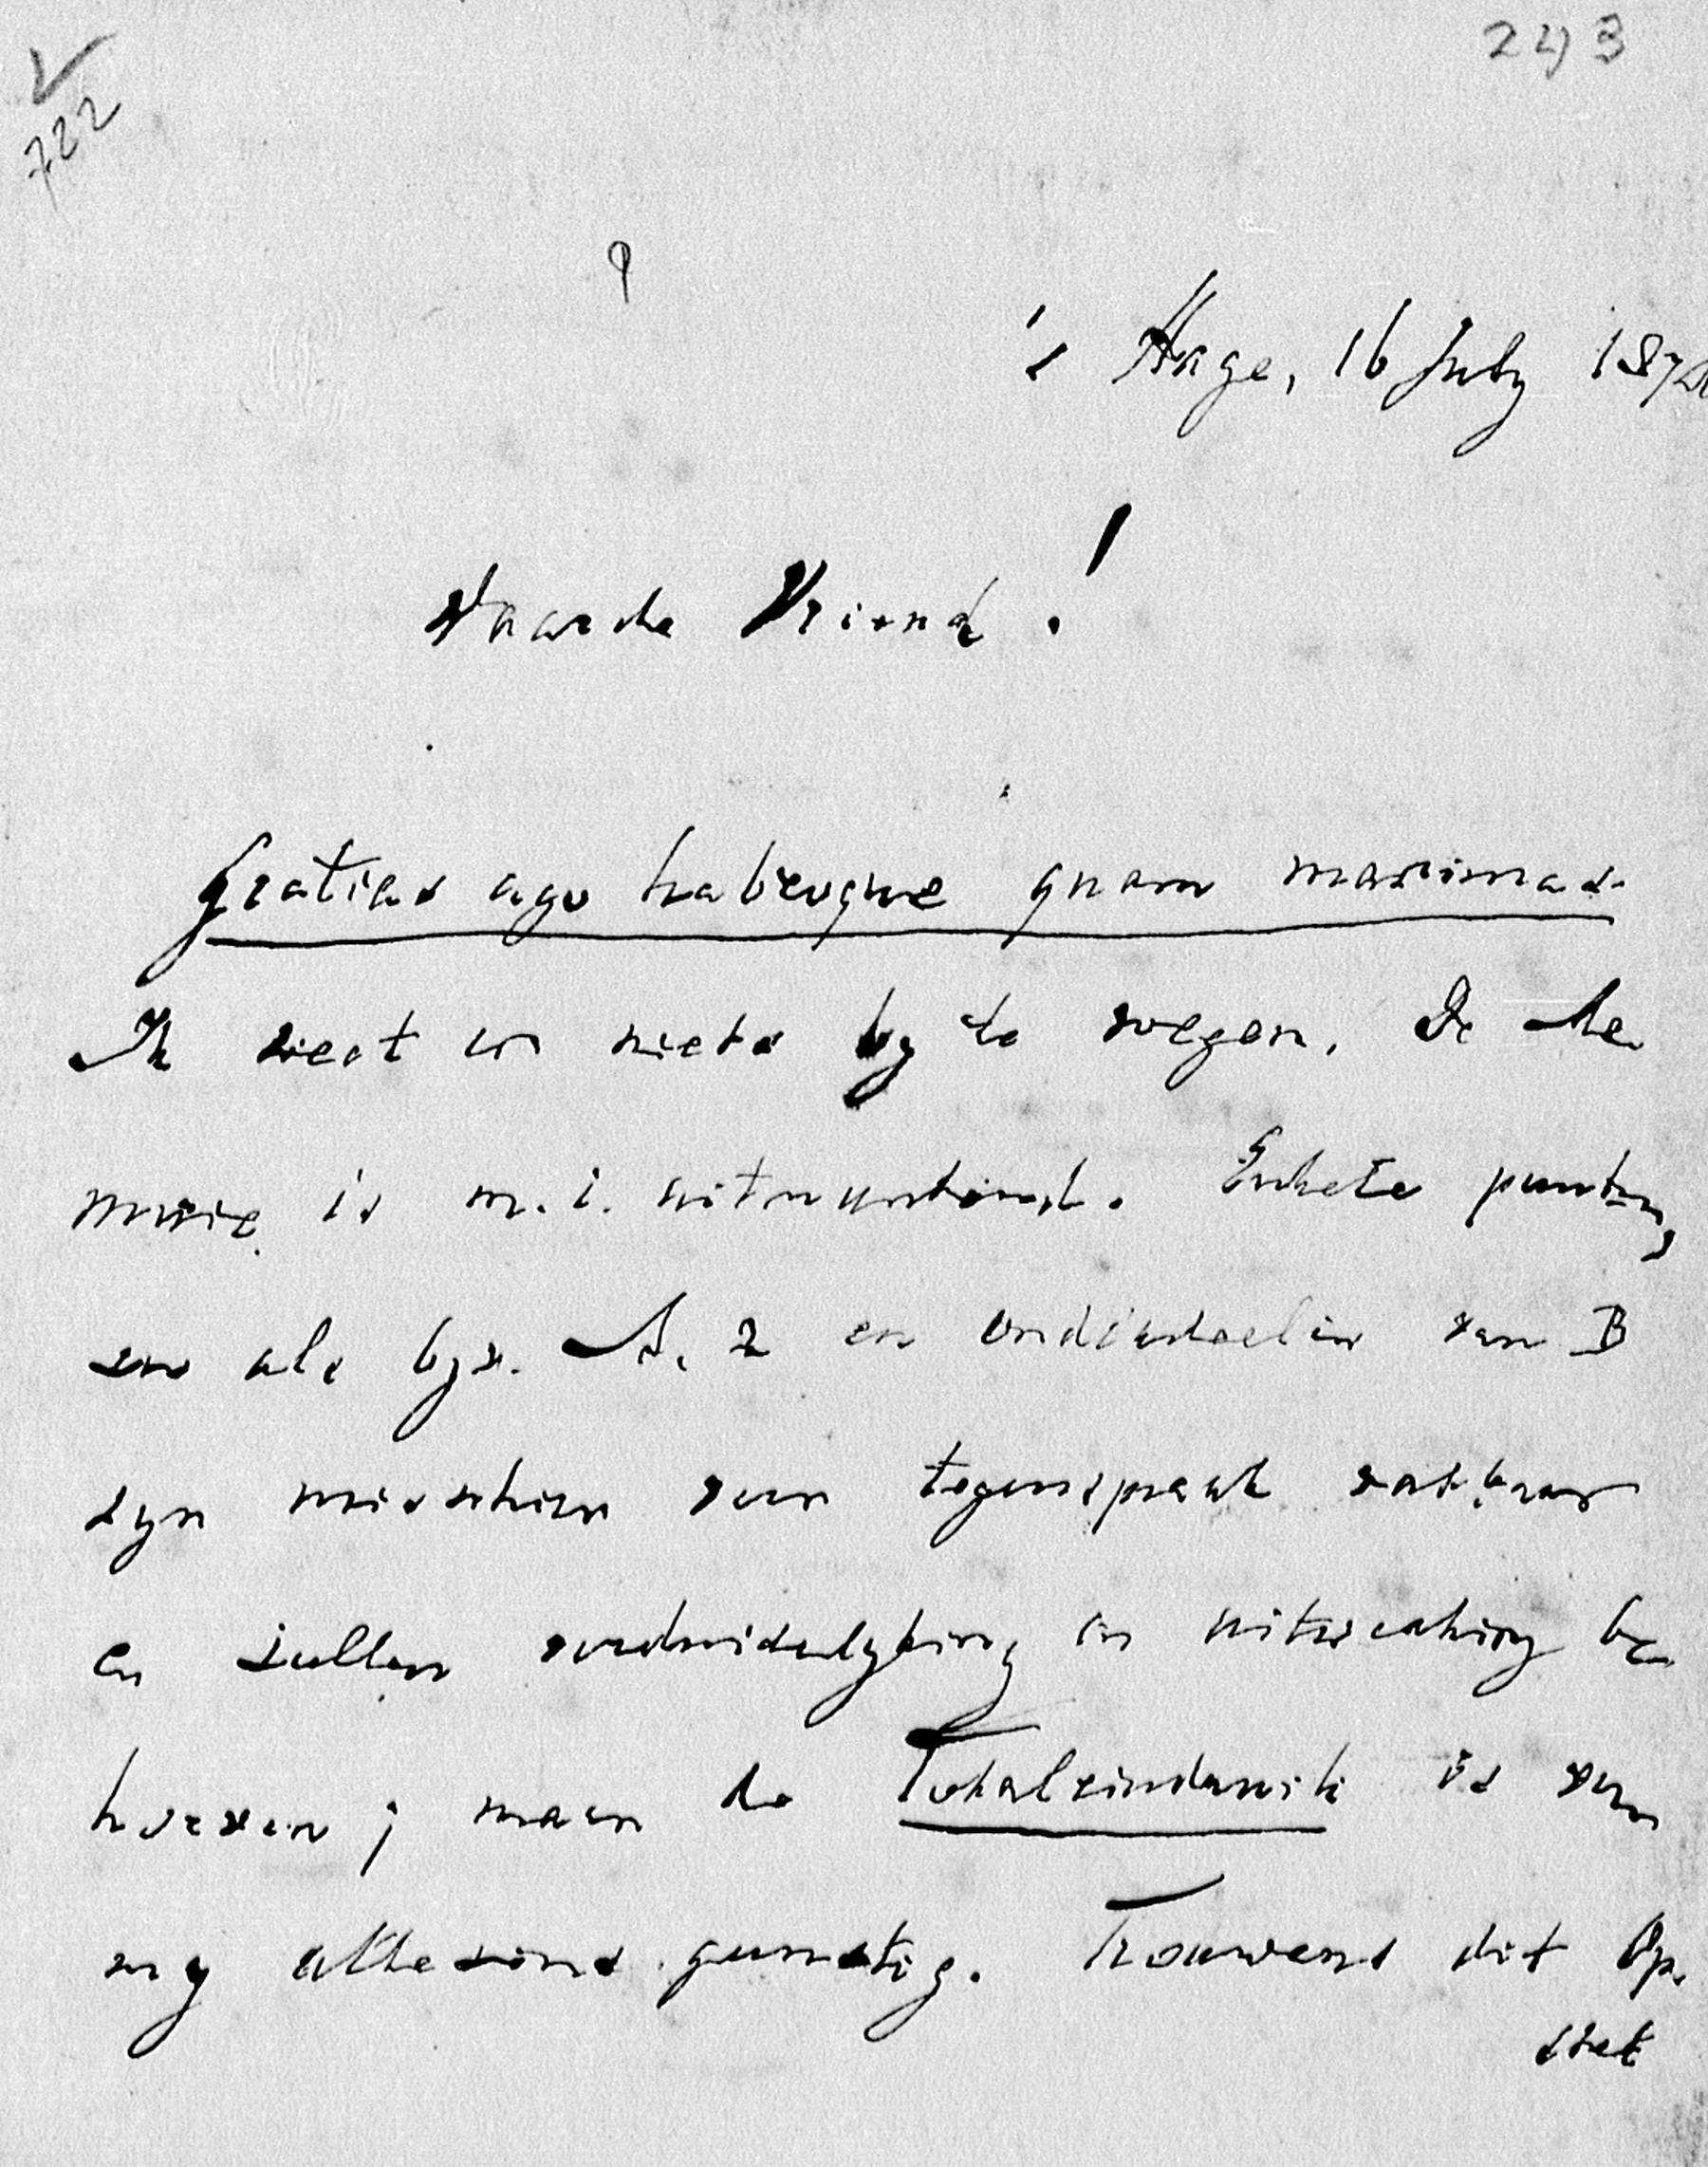 243
✓
722
's Hage, 16 July 187
Waarde Vriend!
Gratias ago habeoque quam maximas.
Ik weet er niets by te voegen. De Me-
morie is m.i. uitmuntend. Enkele punten,
zoo als byv. A. 2 en onderdeelen van B
zyn misschien voor tegenspraak vatbaar
en zullen verduidelyking en uitwerking be
hoeven; maar de Totaleindruk is voor
my alleszins gunstig. Trouwens dit Op-
stel